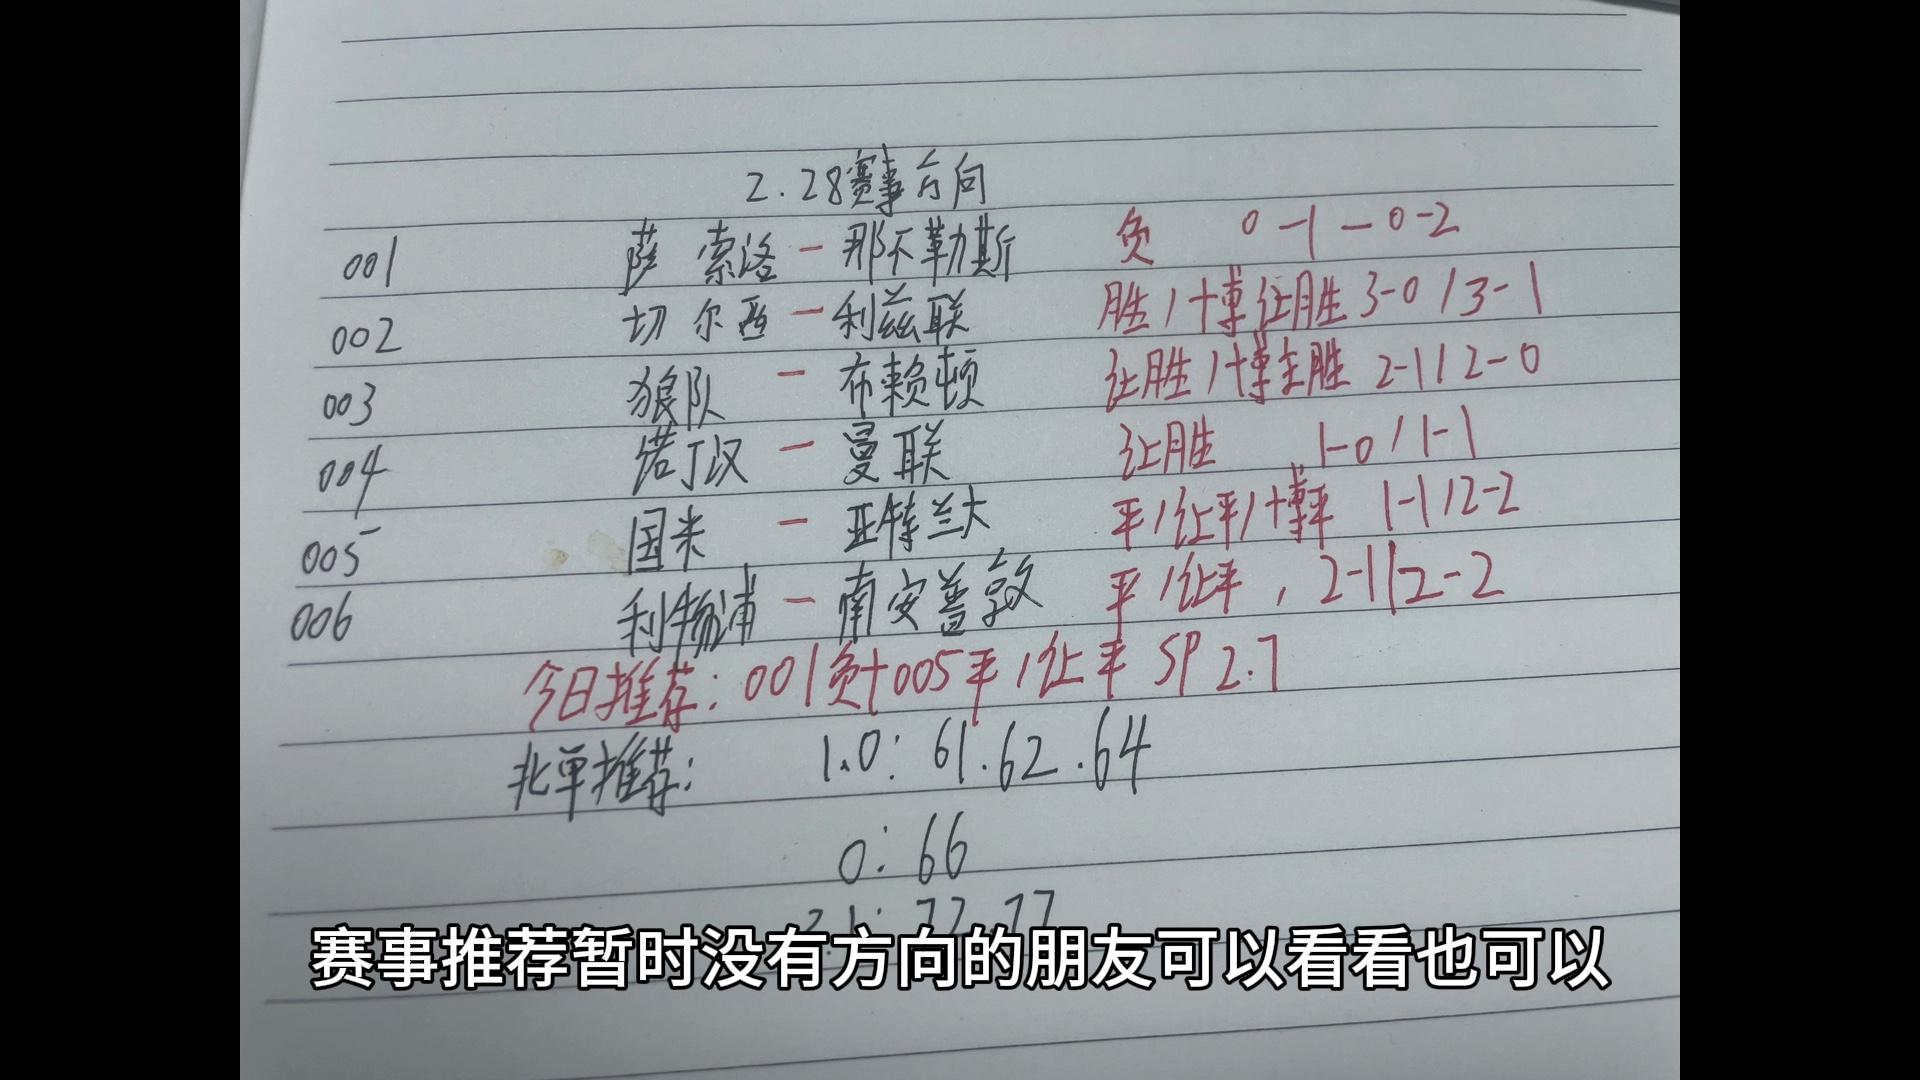 2.28赛事方向
001 萨索洛-那不勒斯 负 0-1-0-2
002 切尔西-利兹联 胜/+博让胜 3-0/3-1
003 狼队-布赖顿 让胜/+博主胜 2-1/2-0
004 诺丁汉-曼联 让胜 1-0/1-1
005 国米-亚特兰大 平/让平/+博平 1-1/2-2
006 利物浦-南安普敦 平/让平, 2-1/2-2
今日推荐: 001负+005平/让平 SP 2.7
北单推荐: 1.0: 61.62.64
0: 66
77
赛事推荐暂时没有方向的朋友可以看看也可以